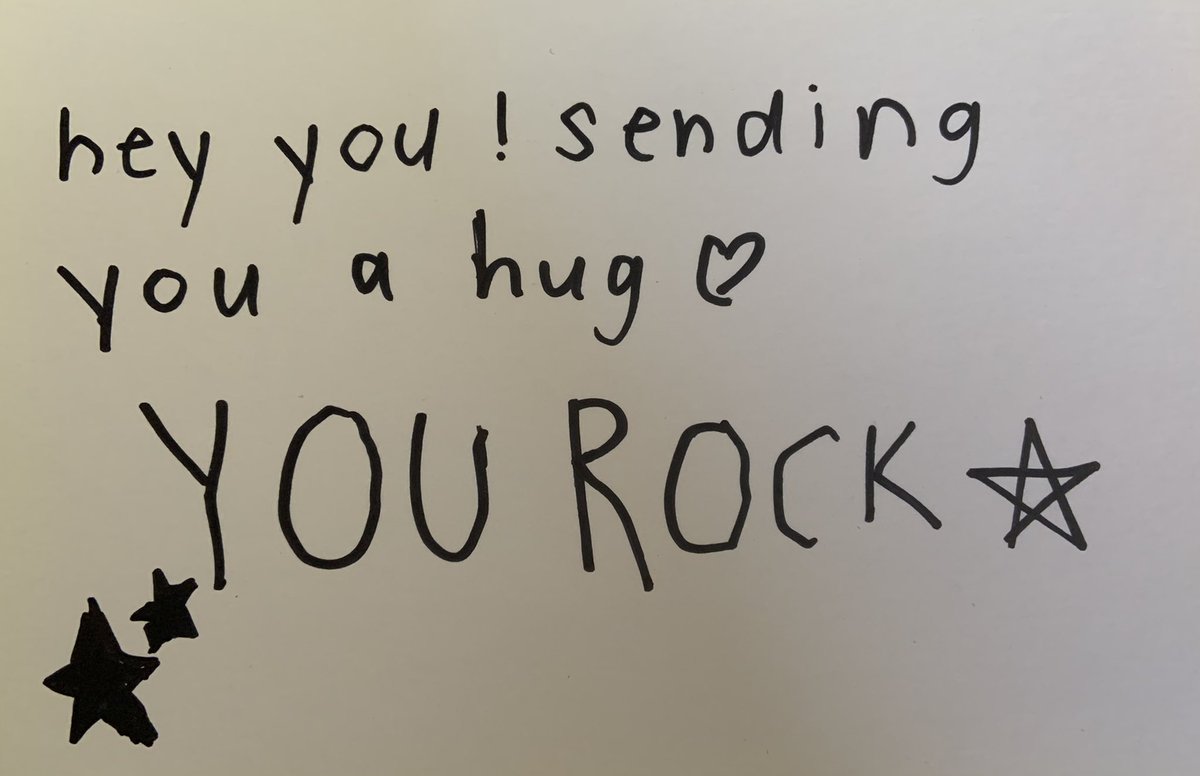 hey you! sending
you a hug ♡
YOU ROCK ☆